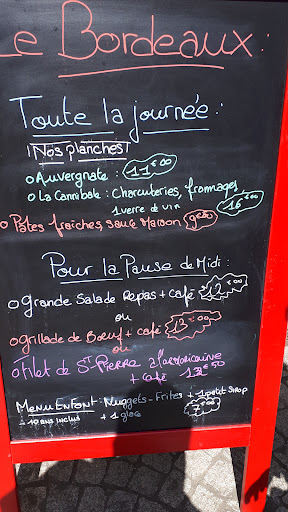 Le Bordeaux :
Toute la journée :
Nos planches
o Auvergnate : 11€00
o La Cannibale : Charcuteries, fromages
1 verre de vin 16€00
o Pâtes fraîches, sauce Maison 9€00
Pour la Pause de Midi :
o Grande Salade Repas + café 12€00
ou
o Grillade de Boeuf + café 13€00
ou
o Filet de St-Pierre à l'armoricaine
+ café 13€50
Menu Enfant : Nuggets - Frites + 1 petit Sirop
- 10 ans inclus + 1 glace 7€00